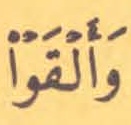 وَأَلۡقَوۡاْ